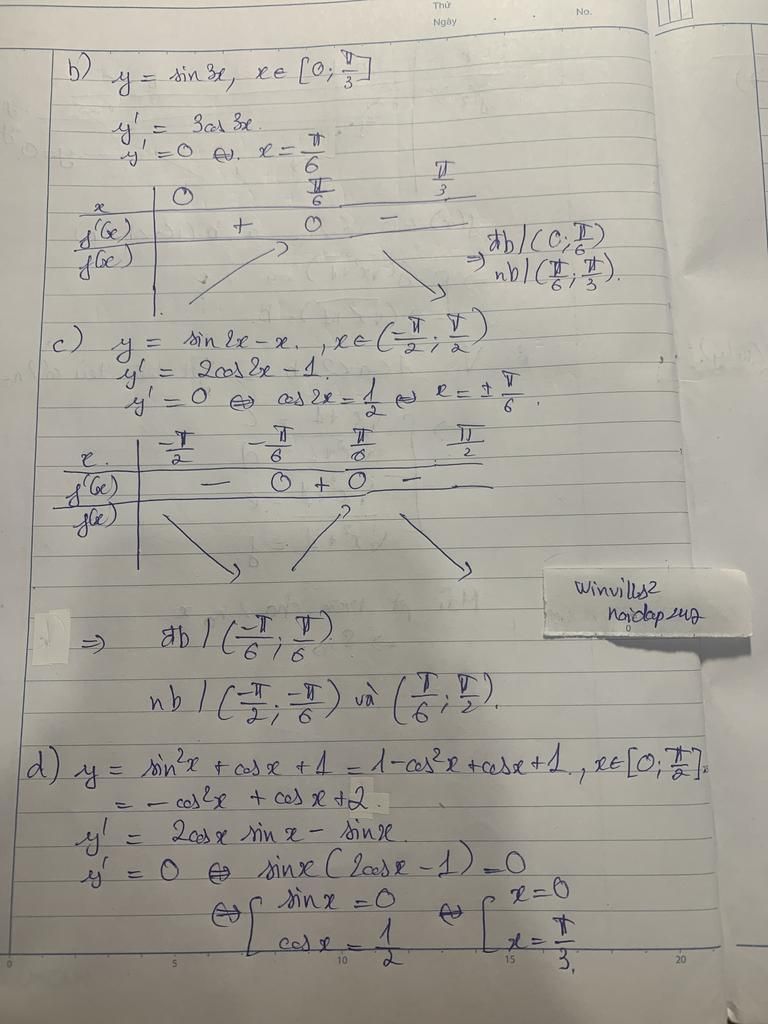 Thứ
Ngày
No.
b) y = sin3x, x∈ [0; π/3]
y' = 3cos3x.
y' = 0 ⇔ x = π/6
x 0 π/6 π/3
f'(x) + 0 −
f(x)
⇒ đb/(0; π/6)
nb/(π/6; π/3).
c) y = sin2x − x. , x∈(-π/2; π/2)
y' = 2cos2x − 1.
y' = 0 ⇔ cos2x = 1/2 ⇔ x = ± π/6.
x. -π/2 -π/6 π/6 π/2
f'(x) − 0 + 0 −
f(x)
Winvills2
⇒ đb / (-π/6; π/6)
nb / (-π/2; -π/6) và (π/6; π/2).
d) y = sin²x + cosx + 1 = 1−cos²x + cosx + 1., x∈[0; π/2].
= − cos²x + cosx + 2.
y' = 2cosx sinx − sinx.
y' = 0 ⇔ sinx (2cosx − 1) = 0
⇔ [ sinx = 0 ⇔ [ x = 0
cosx = 1/2 x = π/3.
0 5 10 15 20